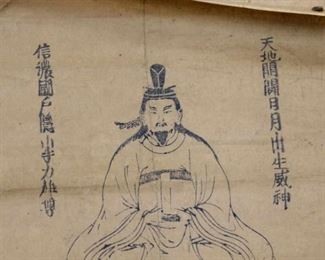 天地開闢日月出生威神
信濃國戸隠山手力雄尊